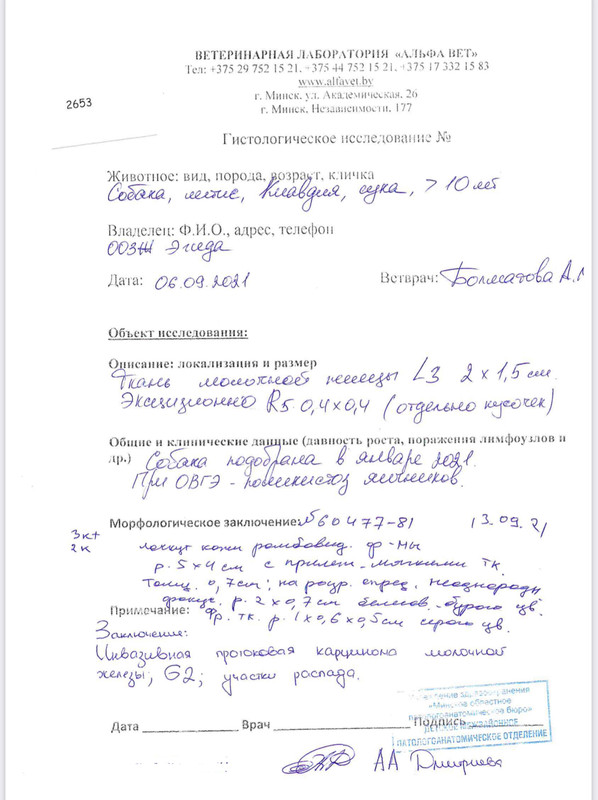 ВЕТЕРИНАРНАЯ ЛАБОРАТОРИЯ «АЛЬФА ВЕТ»
Тел: +375 29 752 15 21, +375 44 752 15 21, +375 17 332 15 83
www.alfavet.by
г. Минск, ул. Академическая, 26
г. Минск, Независимости, 177
2653
Гистологическое исследование №
Животное: вид, порода, возраст, кличка
Собака, метис, Клавдия, сука, > 10 лет
Владелец: Ф.И.О., адрес, телефон
ООЗЖ Эгида
Дата: 06.09.2021 Ветврач: Болматова А.
Объект исследования:
Описание: локализация и размер
Ткань молочной железы L3 2 x 1,5 см.
Эксцизионно R5 0,4x0,4 (отдельно кусочек)
Общие и клинические данные (давность роста, поражения лимфоузлов и
др.) Собака подобрана в январе 2021.
При ОВГЭ - поликистоз яичников.
Морфологическое заключение: №60477-81 13.09.21
3к+
2к
лоскут кожи ромбовид. ф-мы
р. 5x4 см с прилеж. мягкими тк.
толщ. 0,7см; на разр. опред. неоднородн
фокус р. 2x0,7см белесов.-бурого цв.
Примечание: Фр. тк. р. 1x0,6x0,5см серого цв.
Заключение:
Инвазивная протоковая карцинома молочной
железы; G2; участки распада.
здравоохранения
«Минское областное
патологоанатомическое бюро»
МЕЖРАЙОННОЕ
ПАТОЛОГОАНАТОМИЧЕСКОЕ ОТДЕЛЕНИЕ
Дата Врач Подпись
АА Дмитриева